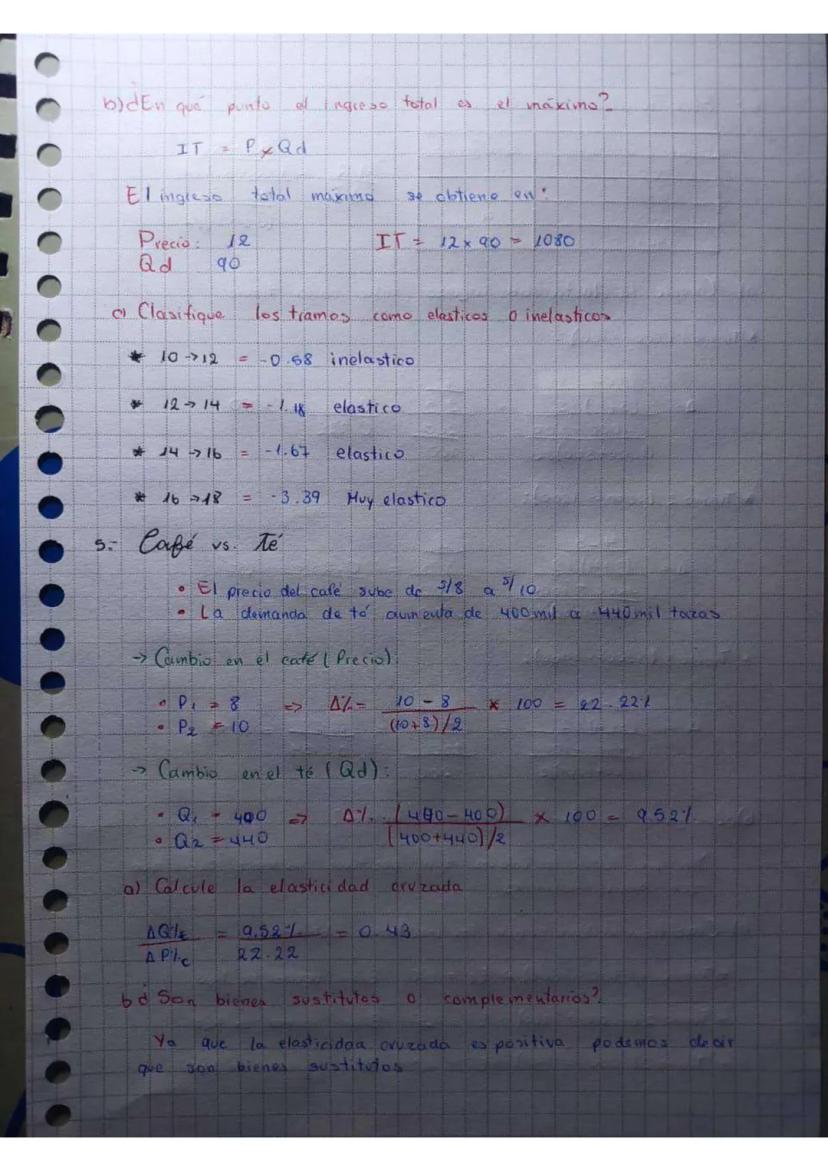 b) ¿En qué punto el ingreso total es el máximo?
IT = P x Qd
El ingreso total máximo se obtiene en:
Precio: 12 IT = 12 x 90 = 1080
Qd 90
c) Clasifique los tramos como elasticos o inelasticos
* 10 → 12 = -0.58 inelastico
* 12 → 14 = -1.18 elastico
* 14 → 16 = -1.67 elastico
* 16 → 18 = -3.39 Muy elastico
5.- Café vs. Té
• El precio del café sube de S/8 a S/10
• La demanda de té aumenta de 400 mil a 440 mil tazas
→ Cambio en el café (Precio):
• P1 = 8 => Δ% = (10 - 8) / ((10+8)/2) * 100 = 22.22%
• P2 = 10
→ Cambio en el té (Qd):
• Q1 = 400 => Δ%. (440-400) / ((400+440)/2) x 100 = 9.52%
• Q2 = 440
a) Calcule la elasticidad cruzada
ΔQ%t / ΔP%c = 9.52% / 22.22 = 0.43
b ¿Son bienes sustitutos o complementarios?
Ya que la elasticidad cruzada es positiva podemos decir
que son bienes sustitutos